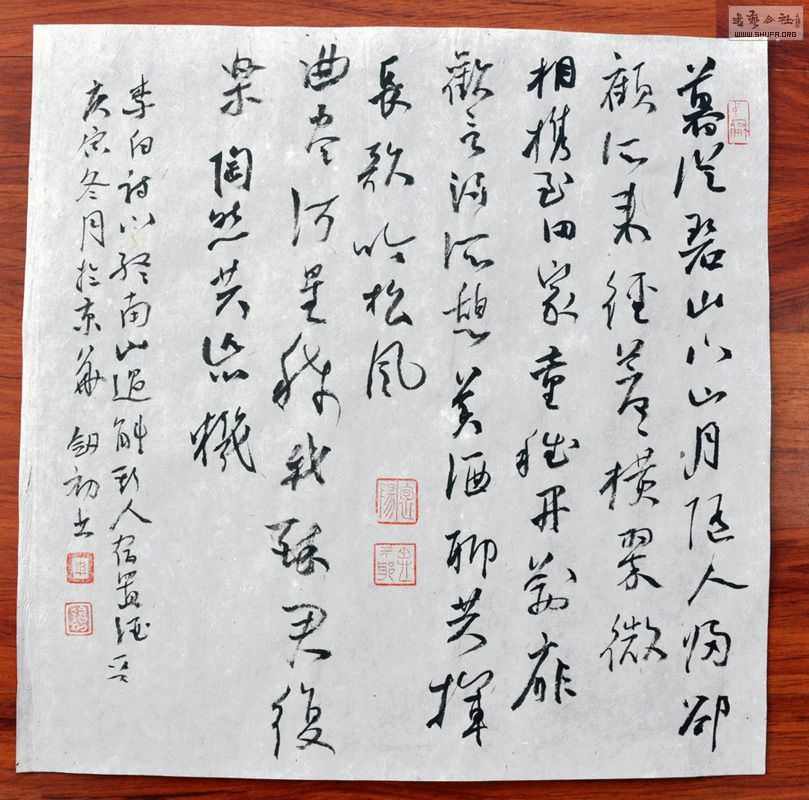 書藝公社
WWW.SHUFA.ORG
暮從碧山下山月隨人歸卻
顧所來徑蒼蒼橫翠微
相携至田家童稚開荊扉
歡言得所憩美酒聊共揮
長歌吟松風
曲盡河星稀我醉君復
樂陶然共忘機
李白詩下終南山過斛斯人宿置酒
庚寅冬月於京華 劍初書